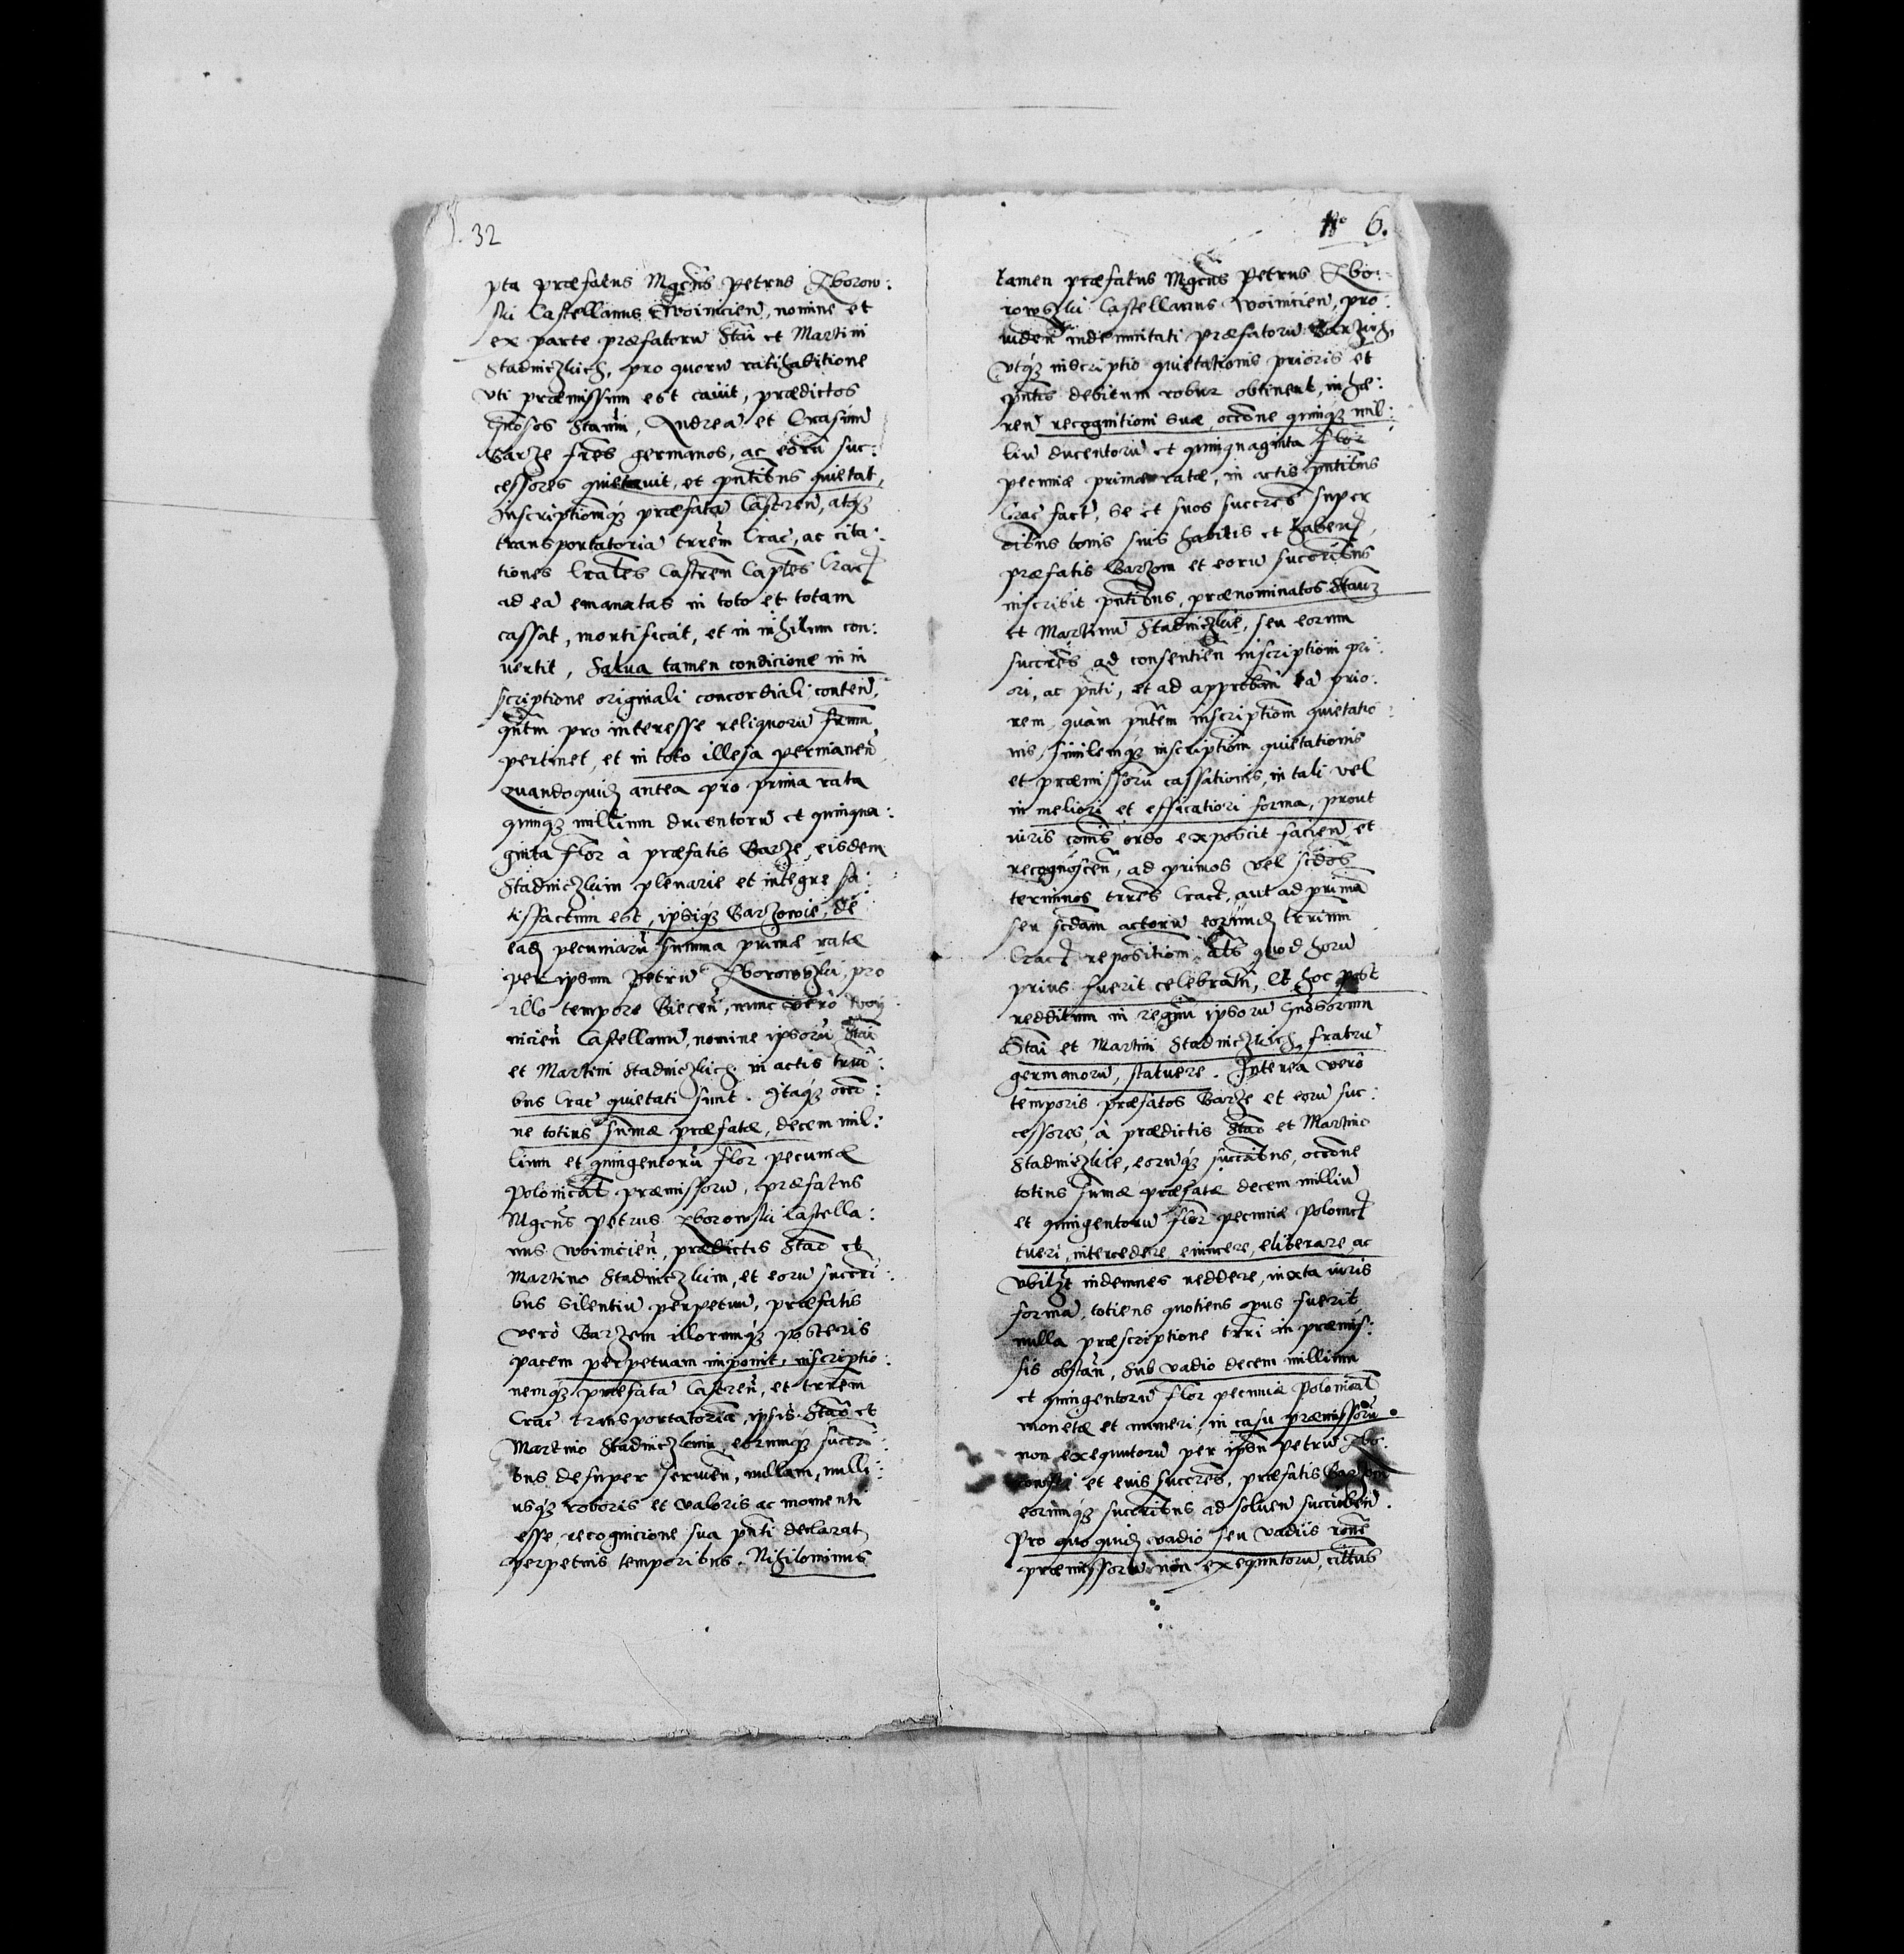 32
pta præfatus Mgcus Petrus Zborow:
ski Castellanus Woinicieñ, nomine et
ex parte præfatorũ Stai et Martini
Stadniczkich, pro quorũ ratihabitione
vti præmissum est cavit, prædictos
Gnosos Staum, Andreã et Erasmũ
Barze fres germanos, ac eorũ suc:
cessores quietavit, et pntibus quietat,
Inscriptionẽqȝ præfatã Castreñ, atqȝ
transportatoriã trrem Crac, ac cita:
tiones Crales Castreñ Caples Crac
ad eã emanatas in toto et totam
cassat, mortificat, et in nihilum con:
vertit, Salva tamen condicione in in
scriptione originali concordiali conteñ,
qntm pro interesse reliquorũ frum
pertinet, et in toto illesa permaneñ
Quandoquid antea pro prima rata
quinqȝ millium ducentorũ et quinqua:
ginta flor à præfatis Barze, eisdem
Stadniczkim plenarie et integre sa:
tissactum est, ipsiqȝ Barzowie, de
ead pecuniarũ summa primæ ratæ
per ipsum Petrũ Zborowski, pro
illo tempore Bieceñ, nunc verò Woy
nicieñ Castellanũ, nomine ipsorũ Stai
et Martini Stadniczkich in actis trri:
bus Crac quietati sunt. Itaqȝ occõ:
ne totius summæ præfatæ, decem mil:
lium et quingentorũ flor pecuniæ
Polonicał præmissorũ, præfatus
Mgcus Petrus Zborowski Castella:
nus Woinicieñ, prædictis Stao et
Martino Stadniczkim, et eorũ succri:
bus silentiũ perpetuũ, præfatis
verò Barzem illorumqȝ posteris
pacem perpetuam imponit, inscriptio:
nemqȝ præfatã Castreñ, et trrem
Crac transportatoriã, ipsis Stao et
Martino Stadniczkim, eorumqȝ succri:
bus desuper servieñ, nullam, nulli:
usqȝ roboris et valoris ac momenti
esse, recognicione sua pnti declarat
perpetuis temporibus. Nihilominus
No 6.
tamen præfatus Mgcus Petrus Zbo:
rowski Castellanus Woinicieñ, pro:
videñ indemnitati præfatorũ Barzich,
Vtqȝ inscriptio quietationis prioris et
pntis debitum robur obtineat, inhæ:
reñ recognitioni suæ, occõne quinqȝ mil:
liũ ducentorũ et quinquaginta flor
pecuniæ primæ ratæ, in actis pntibus
Crac fact, se et suos succres super
oibus bonis suis habitis et habend,
præfatis Barzom et eorũ succribus
inscribit pntibus, prænominatos Staũ
et Martinũ Stadniczkie, seu eorum
succres ad consentieñ inscriptioni pri:
ori, ac pnti, et ad approbañ tã prio:
rem, quàm pntem inscriptiom quietatio:
nis, similemqȝ inscriptiom quietationis
et præmissorũ cassationis, in tali vel
in meliori et efficatiori forma, prout
iuris cõis ordo exposcit facieñ et
recognosceñ, ad primos vel scdos
terminos trres Crac, aut ad primã
seu scdam actorũ eorund trrium
Crac repositiom, als quod horũ
prius fuerit celebratũ, et hoc post
redditum in regnũ ipsorũ Gnosorum
Stai et Martini Stadniczkich, fratrũ
germanorũ, statuere. Interea verò
temporis præfatos Barze et eorũ suc:
cessores, à prædictis Stao et Martino
Stadniczkie, eorũqȝ succribus, occõne
totius summæ præfatæ decem milliũ
et quingentorũ flor pecuniæ Polonic
tueri, intercedere, evincere, eliberare ac
vbilȝt indemnes reddere, iuxta iuris
formã, totiens quotiens opus fuerit
nulla præscriptione trri in præmis:
sis obstañ, sub vadio decem millium
et quingentorũ flor pecuniæ Polonicał
monetæ et numeri, in casu præmissorũ
non exequutorũ per ipsũ Petrũ Zbo:
rowski et eius succres, præfatis Barzom
eorũmqȝ succribus ad solveñ succumbeñ.
Pro quo quid vadio seu vadiis rone
præmissorũ non exequutorũ, cittus